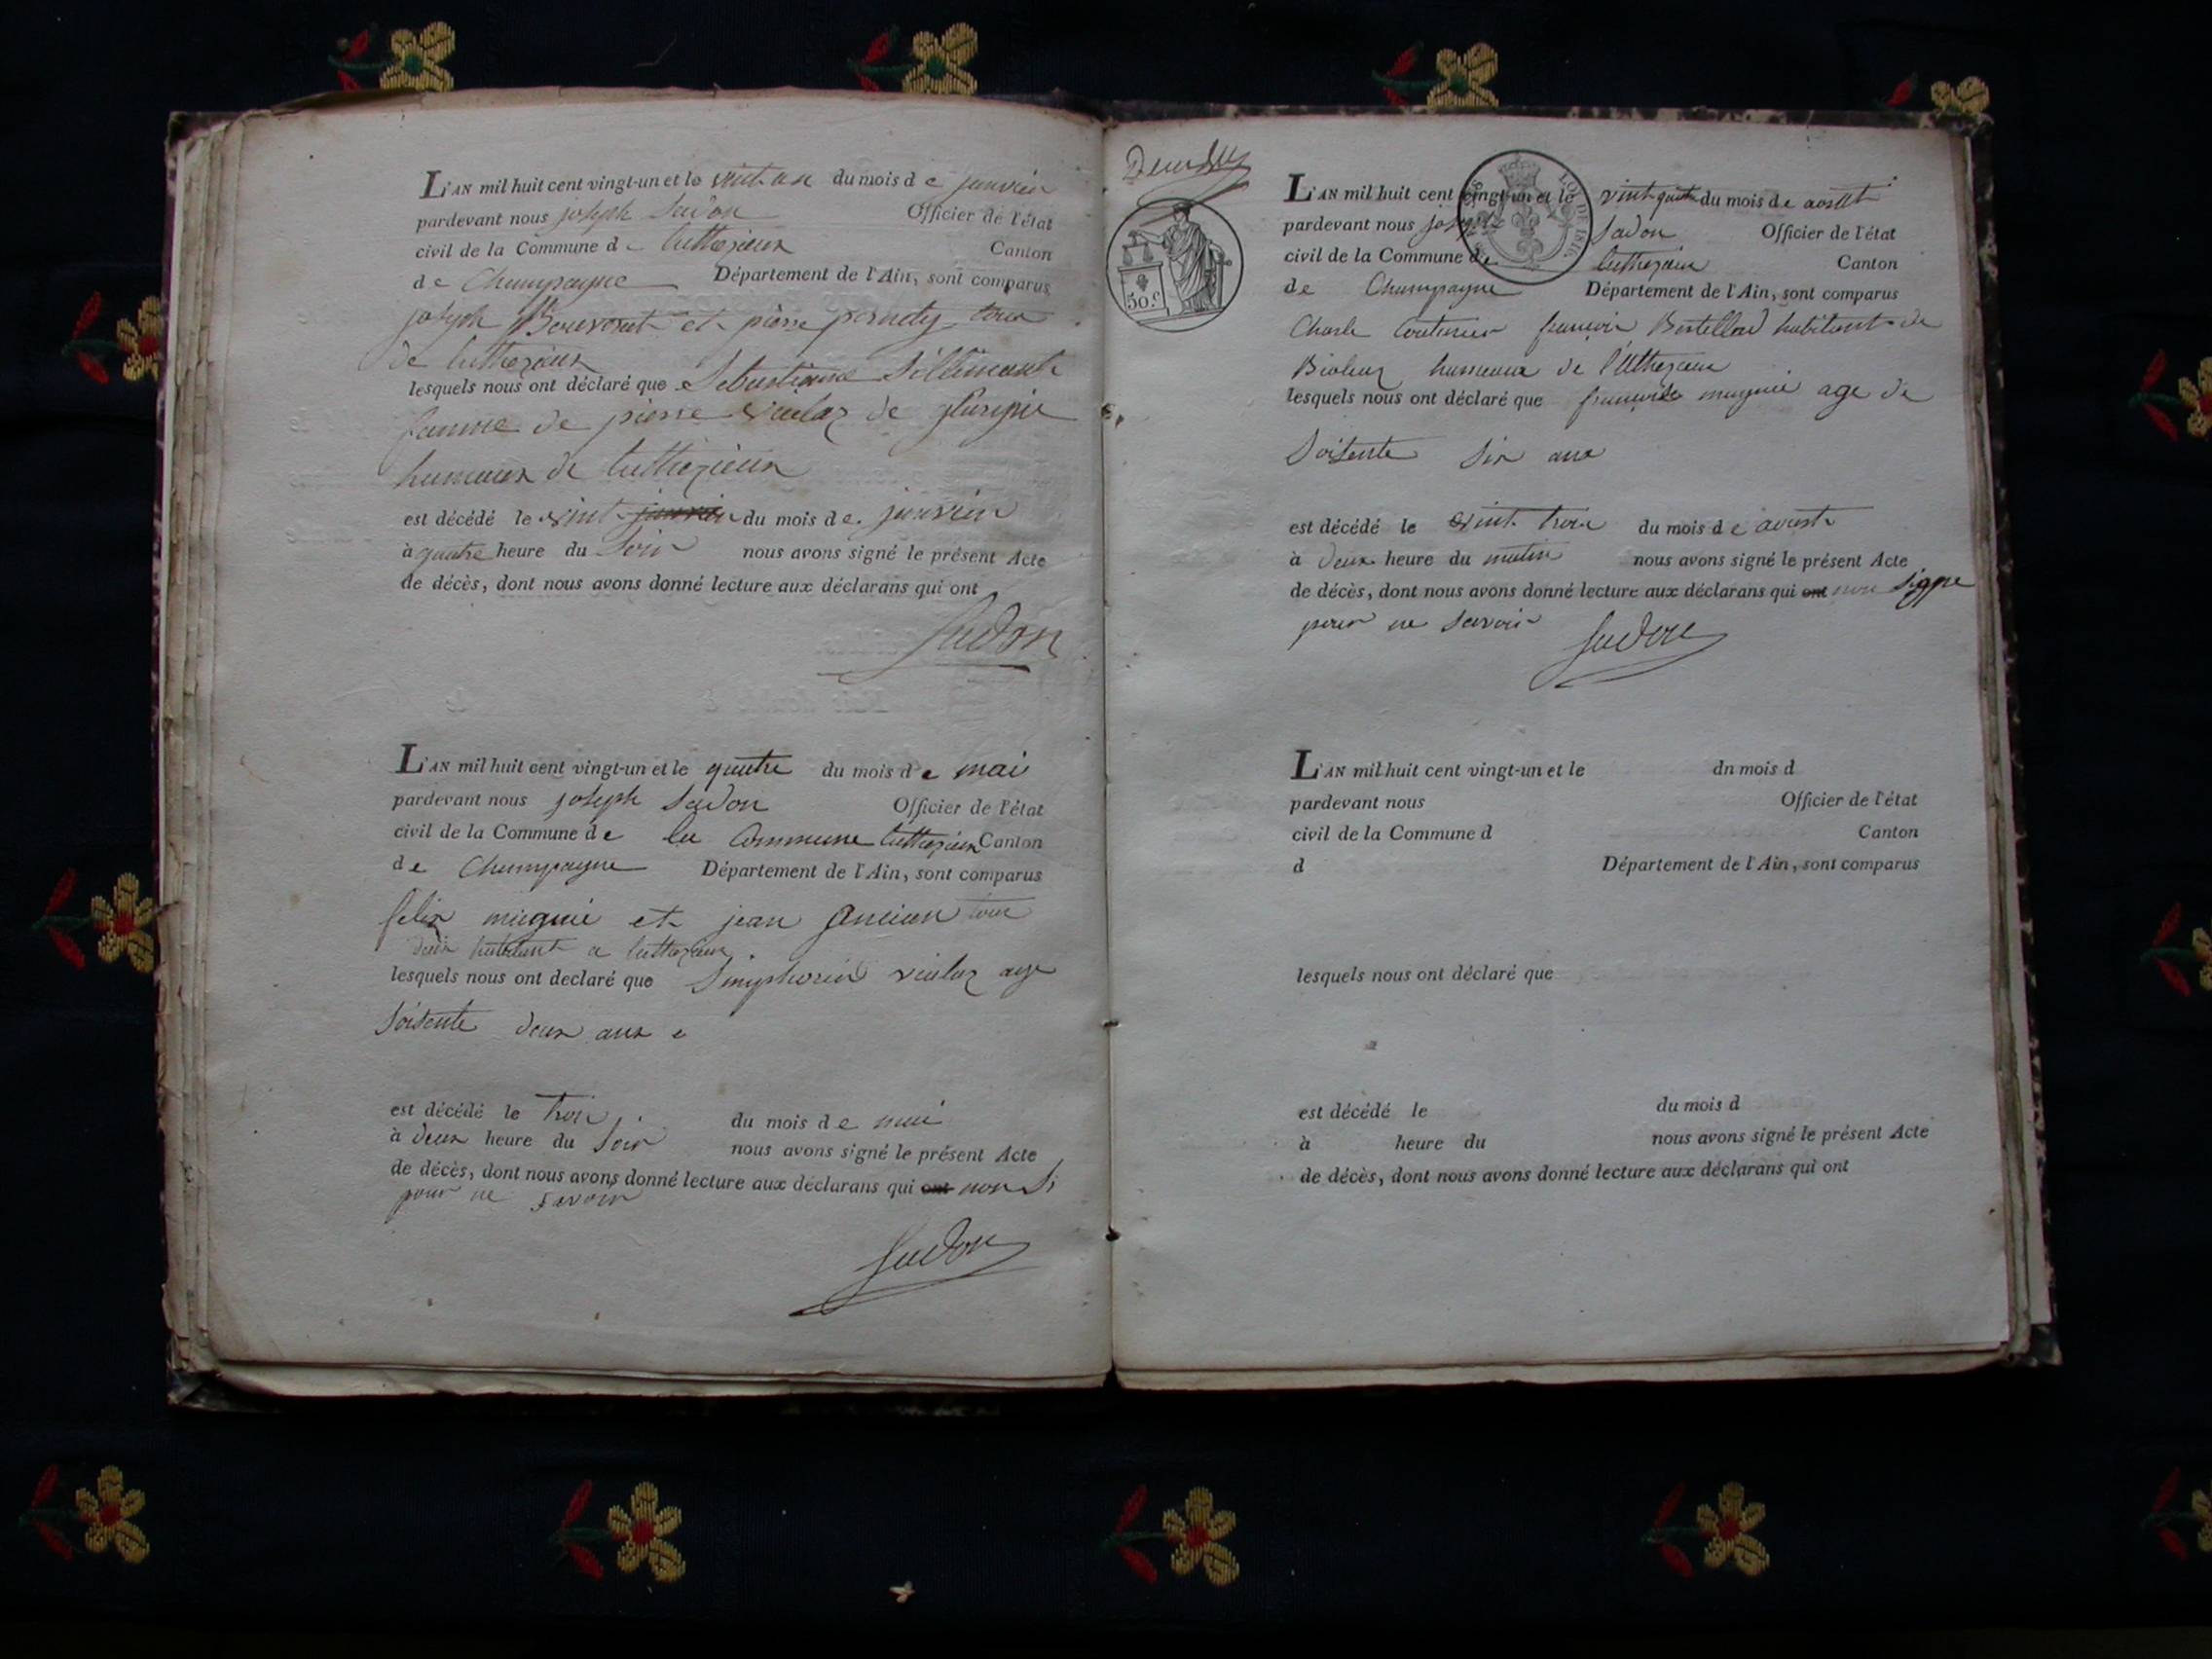 L'AN mil huit cent vingt-un et le vint un du mois de janvier
pardevant nous joseph Sadon Officier de l'état
civil de la Commune de luthezieux Canton
de Champagne Département de l'Ain, sont comparus
joseph Bouvent et pierre tous
de luthezieux
lesquels nous ont déclaré que Sebastienne
famme de pierre vialaz de
hameaux de luthezieux
est décédé le vint janvier du mois de janvier
à quatre heure du Soir nous avons signé le présent Acte
de décès, dont nous avons donné lecture aux déclarans qui ont
Sadon
L'AN mil huit cent vingt-un et le quatre du mois de mai
pardevant nous joseph Sadon Officier de l'état
civil de la Commune de la Commune luthezieux Canton
de Champagne Département de l'Ain, sont comparus
felix mugnié et jean Ancian tous
deux habitant a luthezieux
lesquels nous ont declaré que Simphorin vialaz age
Soisente deux ans
est décédé le trois du mois de mai
à deux heure du Soir nous avons signé le présent Acte
de décès, dont nous avons donné lecture aux déclarans qui ont non Si
pour ne savoir
Sadon
50.c
LOI DE 1816
L'AN mil huit cent vingt-un et le vint quatre du mois de aoust
pardevant nous joseph Sadon Officier de l'état
civil de la Commune de luthezieux Canton
de Champagne Département de l'Ain, sont comparus
Charle Couturier françois Bertelland habitant de
Biolaz hameaux de l'uthezieux
lesquels nous ont déclaré que françoise mugnié age de
Soisente Six ans
est décédé le vint trois du mois de aoust
à deux heure du matin nous avons signé le présent Acte
de décès, dont nous avons donné lecture aux déclarans qui ont non Signe
pour ne Savoir Sadon
L'AN mil huit cent vingt-un et le dn mois d
pardevant nous Officier de l'état
civil de la Commune d Canton
d Département de l'Ain, sont comparus
lesquels nous ont déclaré que
est décédé le du mois d
à heure du nous avons signé le présent Acte
de décès, dont nous avons donné lecture aux déclarans qui ont